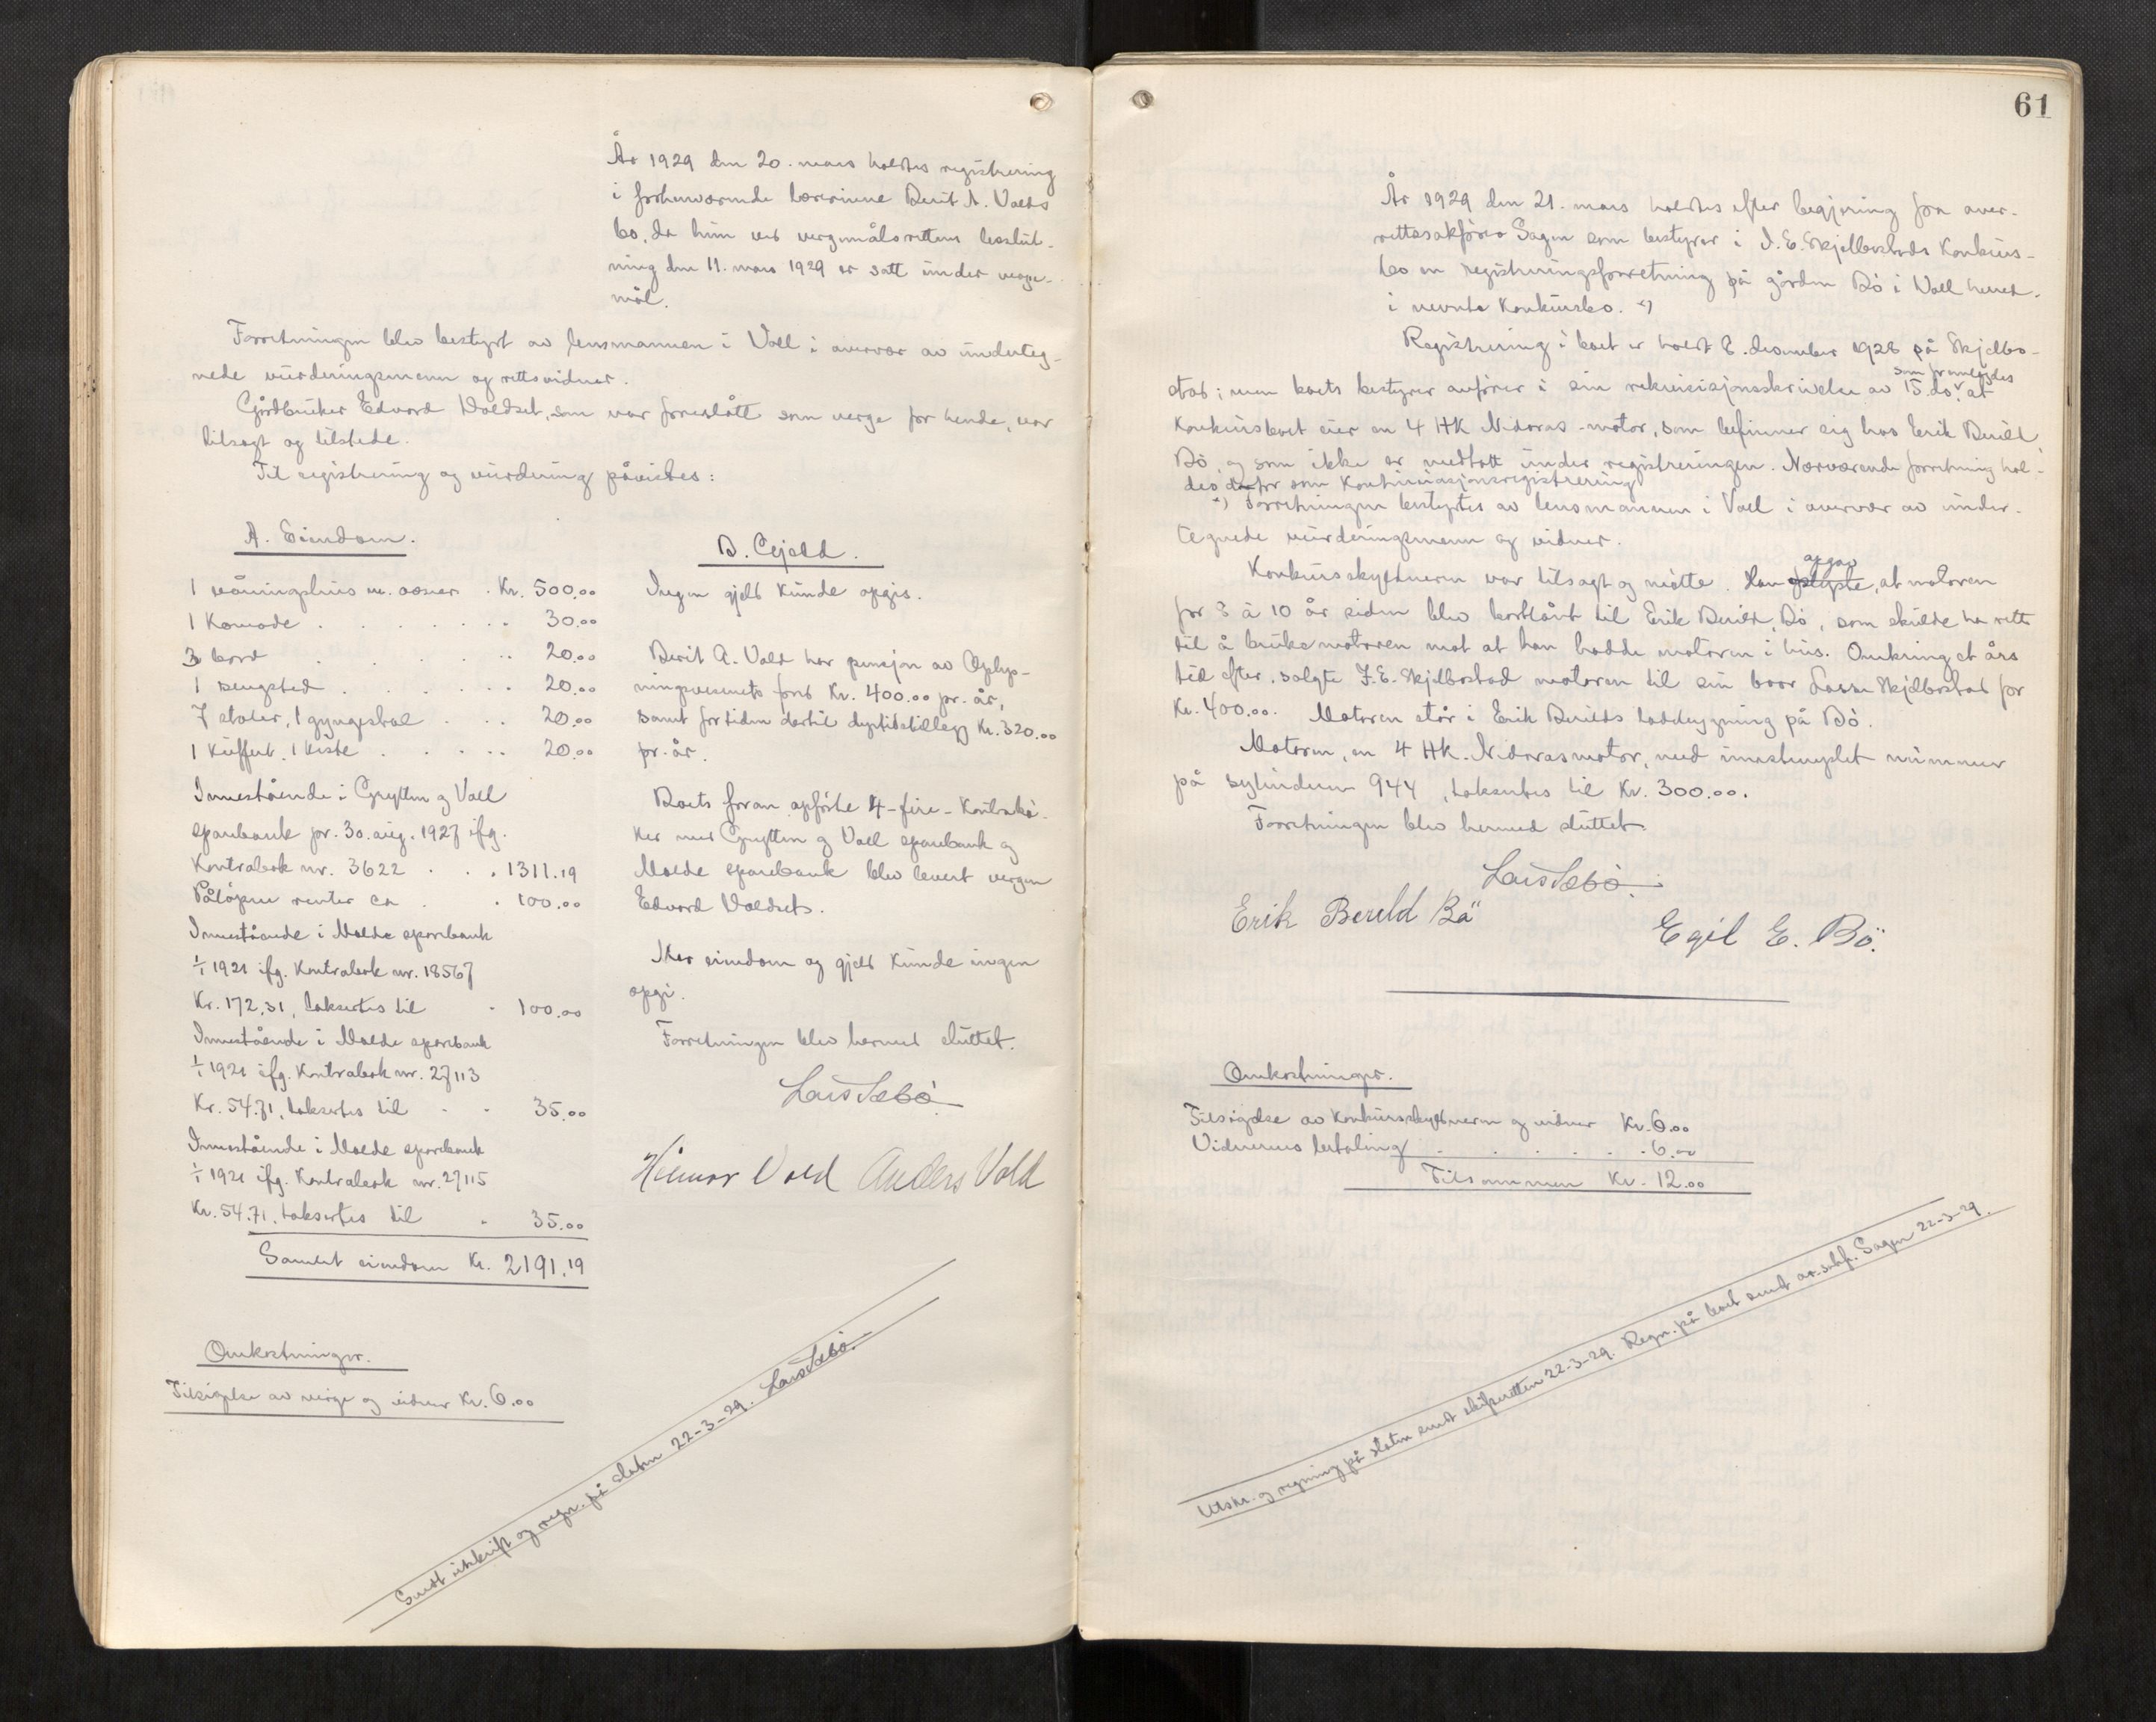 År 1929 den 20. mars holdtes registrering
i forhenværende lærerinne Berit A. Volds
bo, da hun ved vergemålsrettens beslut-
ning den 11. mars 1929 er satt under verge-
mål.
Forretningen blev bestyrt av lensmannen i Voll i overvær av underteg-
nede vurderingsmenn og rettsvidner.
Gårdbruker Edvard Voldset, som var foreslått som verge for hende, var
tilsagt og tilstede.
Til registrering og vurdering påvistes:
A. Eiendom.
1 våningshus m. ovner . Kr. 500.00
1 Komode . . . . . . . 30.00
3 bord . . . . . . 20.00
1 sengsted . . . . . . 20.00
7 stoler, 1 gyngestol . . . 20.00
1 Kuffert, 1 kiste . . . . . 20.00
Innestående i Grytten og Voll
sparebank pr. 30. aug. 1927 ifg.
Kontrabok nr. 3622 . . . 1311.19
Påløpne renter ca . . 100.00
Innestående i Molde sparebank
1/1 1921 ifg. Kontrabok nr. 18567
Kr. 172.31, taksertes til . 100.00
Innestående i Molde sparebank
1/1 1921 ifg. Kontrabok nr. 27113
Kr. 54.71, taksertes til . . 35.00
Innestående i Molde sparebank
1/1 1921 ifg. Kontrabok nr. 27115
Kr. 54.71, taksertes til . 35.00
Samlet eiendom Kr. 2191.19
Omkostninger.
Tilsigelse av verge og vidner Kr. 6.00
B. Gjeld.
Ingen gjeld kunde opgis.
Berit A. Vold har pensjon av Oplys-
ningsvesenets fond Kr. 400.00 pr. år,
samt for tiden dertil dyrtidstillegg Kr. 320.00
pr. år.
Boets foran opførte 4-fire-Kontrabø-
ker med Grytten og Voll sparebank og
Molde sparebank blev levert vergen
Edvard Voldset.
Mer eiendom og gjeld kunde ingen
opgi.
Forretningen blev hermed sluttet.
Lars Sæbø.
Hilmar Vold Anders Vold
Sendt utskrift og regn. på staten 22-3-29. Lars Sæbø.
61
År 1929 den 21. mars holdtes efter begjæring fra over-
rettssakfører Sagen som bestyrer i J. E. Skjelbostads Konkurs-
bo en registreringsforretning på gården Bø i Voll herred
i nevnte Konkursbo. x)
Registrering i boet er holdt 8. desember 1928 på Skjelbo-
som fremlegdes
stad; men boets bestyrer anfører i sin rekvisisjonsskrivelse av 15. ds. v at
Konkursboet eier en 4 HK Nidaros-motor, som befinner sig hos Erik Berild
Bø, og som ikke er medtatt under registreringen. Nærværende forretning hol-
des derfor som Kontinuasjonsregistrering
x) Forretningen bestyrtes av lensmannen i Voll i overvær av under-
tegnede vurderingsmenn og vidner.
opgav
Konkursskyldneren var tilsagt og møtte. Han oplyste, at motoren
for 8 à 10 år siden blev bortlånt til Erik Berild, Bø, som skulde ha rett
til å bruke motoren mot at han hadde motoren i hus. Omkring et års
tid efter, solgte J. E. Skjelbostad motoren til sin bror Lasse Skjelbostad for
Kr. 400.00. Motoren står i Erik Berilds ladebygning på Bø.
Motoren, en 4 HK. Nidarosmotor, med innstemplet nummer
på sylinderen 944, taksertes til Kr. 300.00.
Forretningen blev hermed sluttet.
Lars Sæbø.
Erik Berild Bö Egil E. Bö.
Omkostninger.
Tilsigelse av Konkursskyldneren og vidner Kr. 6.00
Vidnernes betaling . . . . . . 6.00
Tilsammen Kr. 12.00
Utskr. og regning på staten sendt skifteretten 22-3-29. Regn. på boet sendt o.r.sakf. Sagen 22-3-29.